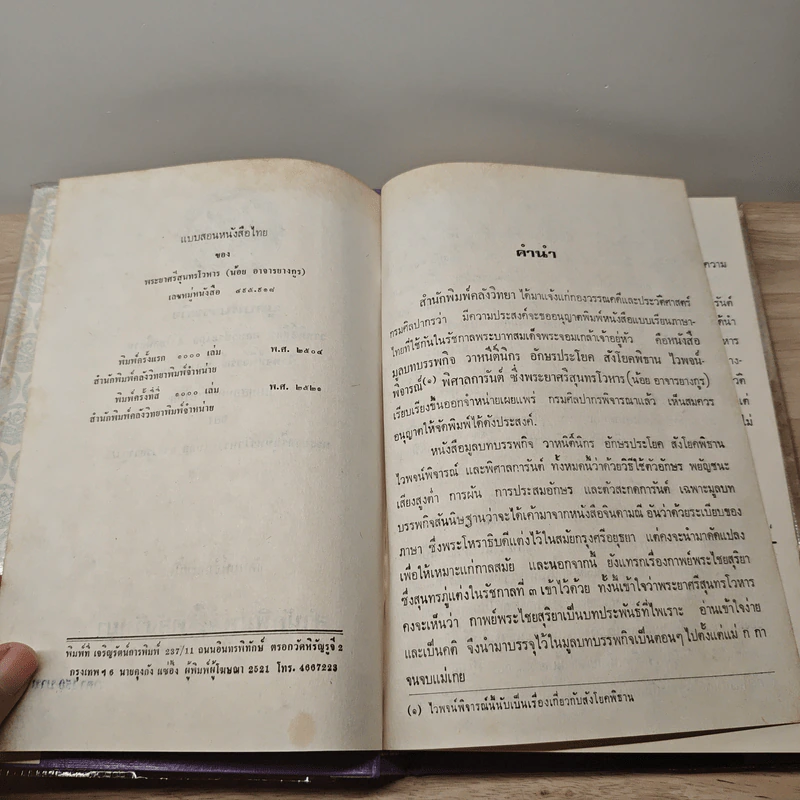 แบบสอนหนังสือไทย
ของ
พระยาศรีสุนทรโวหาร (น้อย อาจารยางกูร)
เลขหมู่หนังสือ ๘๙๕.๙๑๘
พิมพ์ครั้งแรก ๑๐๐๐ เล่ม พ.ศ. ๒๕๐๔
สำนักพิมพ์คลังวิทยาพิมพ์จำหน่าย
พิมพ์ครั้งที่สี่ ๑๐๐๐ เล่ม พ.ศ. ๒๕๒๑
สำนักพิมพ์คลังวิทยาพิมพ์จำหน่าย
พิมพ์ที่ เจริญรัตน์การพิมพ์ 237/11 ถนนอินทรพิทักษ์ ตรอกวัดหิรัญรูจี 2
กรุงเทพฯ 6 นายคุงกัง แซ่อึ้ง ผู้พิมพ์ผู้โฆษณา 2521 โทร. 4667223
คำนำ
สำนักพิมพ์คลังวิทยา ได้มาแจ้งแก่กองวรรณคดีและประวัติศาสตร์
กรมศิลปากรว่า มีความประสงค์จะขออนุญาตพิมพ์หนังสือแบบเรียนภาษา-
ไทยที่ใช้กันในรัชกาลพระบาทสมเด็จพระจอมเกล้าเจ้าอยู่หัว คือหนังสือ
มูลบทบรรพกิจ วาหนิติ์นิกร อักษรประโยค สังโยคพิธาน ไวพจน์-
พิจารณ์(๑) พิศาลการันต์ ซึ่งพระยาศรีสุนทรโวหาร (น้อย อาจารยางกูร)
เรียบเรียงขึ้นออกจำหน่ายเผยแพร่ กรมศิลปากรพิจารณาแล้ว เห็นสมควร
อนุญาตให้จัดพิมพ์ได้ดังประสงค์.
หนังสือมูลบทบรรพกิจ วาหนิติ์นิกร อักษรประโยค สังโยคพิธาน
ไวพจน์พิจารณ์ และพิศาลการันต์ ทั้งหมดนี้ว่าด้วยวิธีใช้ตัวอักษร พยัญชนะ
เสียงสูงต่ำ การผัน การประสมอักษร และตัวสะกดการันต์ เฉพาะมูลบท
บรรพกิจสันนิษฐานว่าจะได้เค้ามาจากหนังสือจินดามณี อันว่าด้วยระเบียบของ
ภาษา ซึ่งพระโหราธิบดีแต่งไว้ในสมัยกรุงศรีอยุธยา แต่คงจะนำมาดัดแปลง
เพื่อให้เหมาะแก่กาลสมัย และนอกจากนี้ ยังแทรกเรื่องกาพย์พระไชยสุริยา
ซึ่งสุนทรภู่แต่งในรัชกาลที่ ๓ เข้าไว้ด้วย ทั้งนี้เข้าใจว่าพระยาศรีสุนทรโวหาร
คงจะเห็นว่า กาพย์พระไชยสุริยาเป็นบทประพันธ์ที่ไพเราะ อ่านเข้าใจง่าย
และเป็นคติ จึงนำมาบรรจุไว้ในมูลบทบรรพกิจเป็นตอนๆ ไปตั้งแต่แม่ ก กา
จนจบแม่เกย
(๑) ไวพจน์พิจารณ์นี้นับเป็นเรื่องเกี่ยวกับสังโยคพิธาน